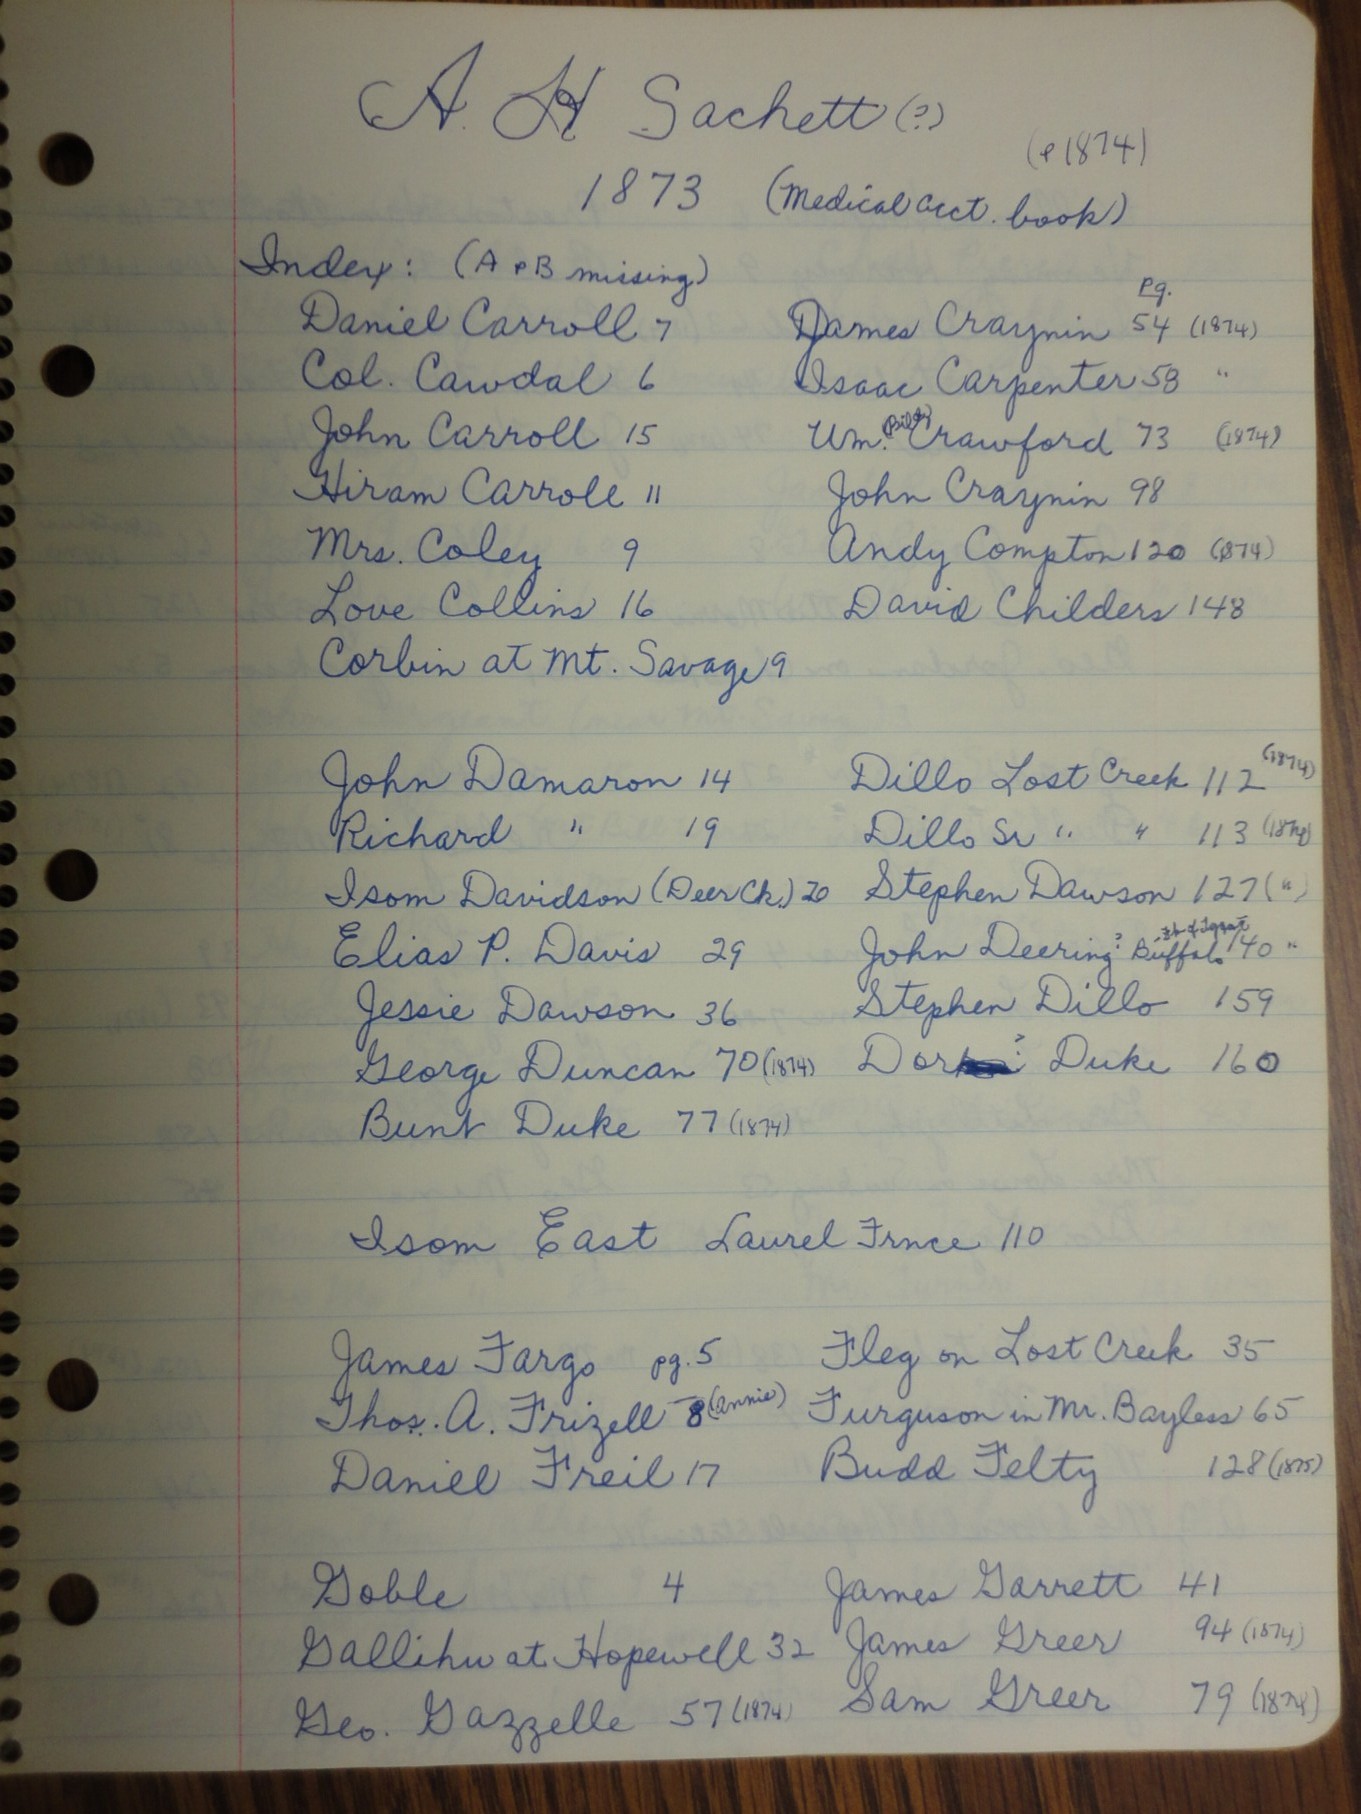 A. H Sachett (?)
(& 1874)
1873 (Medical acct. book)
Index: (A & B missing)
pg.
Daniel Carroll 7 James Craynin 54 (1874)
Col. Cawdal 6 Isaac Carpenter 58 "
John Carroll 15 Wm. (Billy) Crawford 73 (1874)
Hiram Carroll 11 John Craynin 98
Mrs. Coley 9 Andy Compton 120 (1874)
Love Collins 16 David Childers 148
Corbin at Mt. Savage 9
John Damaron 14 Dillo Lost Creek 112 (1874)
Richard " 19 Dillo Sr " " 113 (1874)
Isom Davidson (Deer Ck.) 20 Stephen Dawson 127 (")
Elias P. Davis 29 John Deering? Buffalo 140 "
Jessie Dawson 36 Stephen Dillo 159
George Duncan 70 (1874) Dor ? Duke 160
Bunt Duke 77 (1874)
Isom East Laurel Frnce 110
James Fargo pg. 5 Fleg on Lost Creek 35
Thos. A. Frizell 8 (Annie) Furguson in Mr. Bayless 65
Daniel Freil 17 Budd Felty 128 (1875)
Goble 4 James Garrett 41
Gallihu at Hopewell 32 James Greer 94 (1874)
Geo. Gazzelle 57 (1874) Sam Greer 79 (1874)